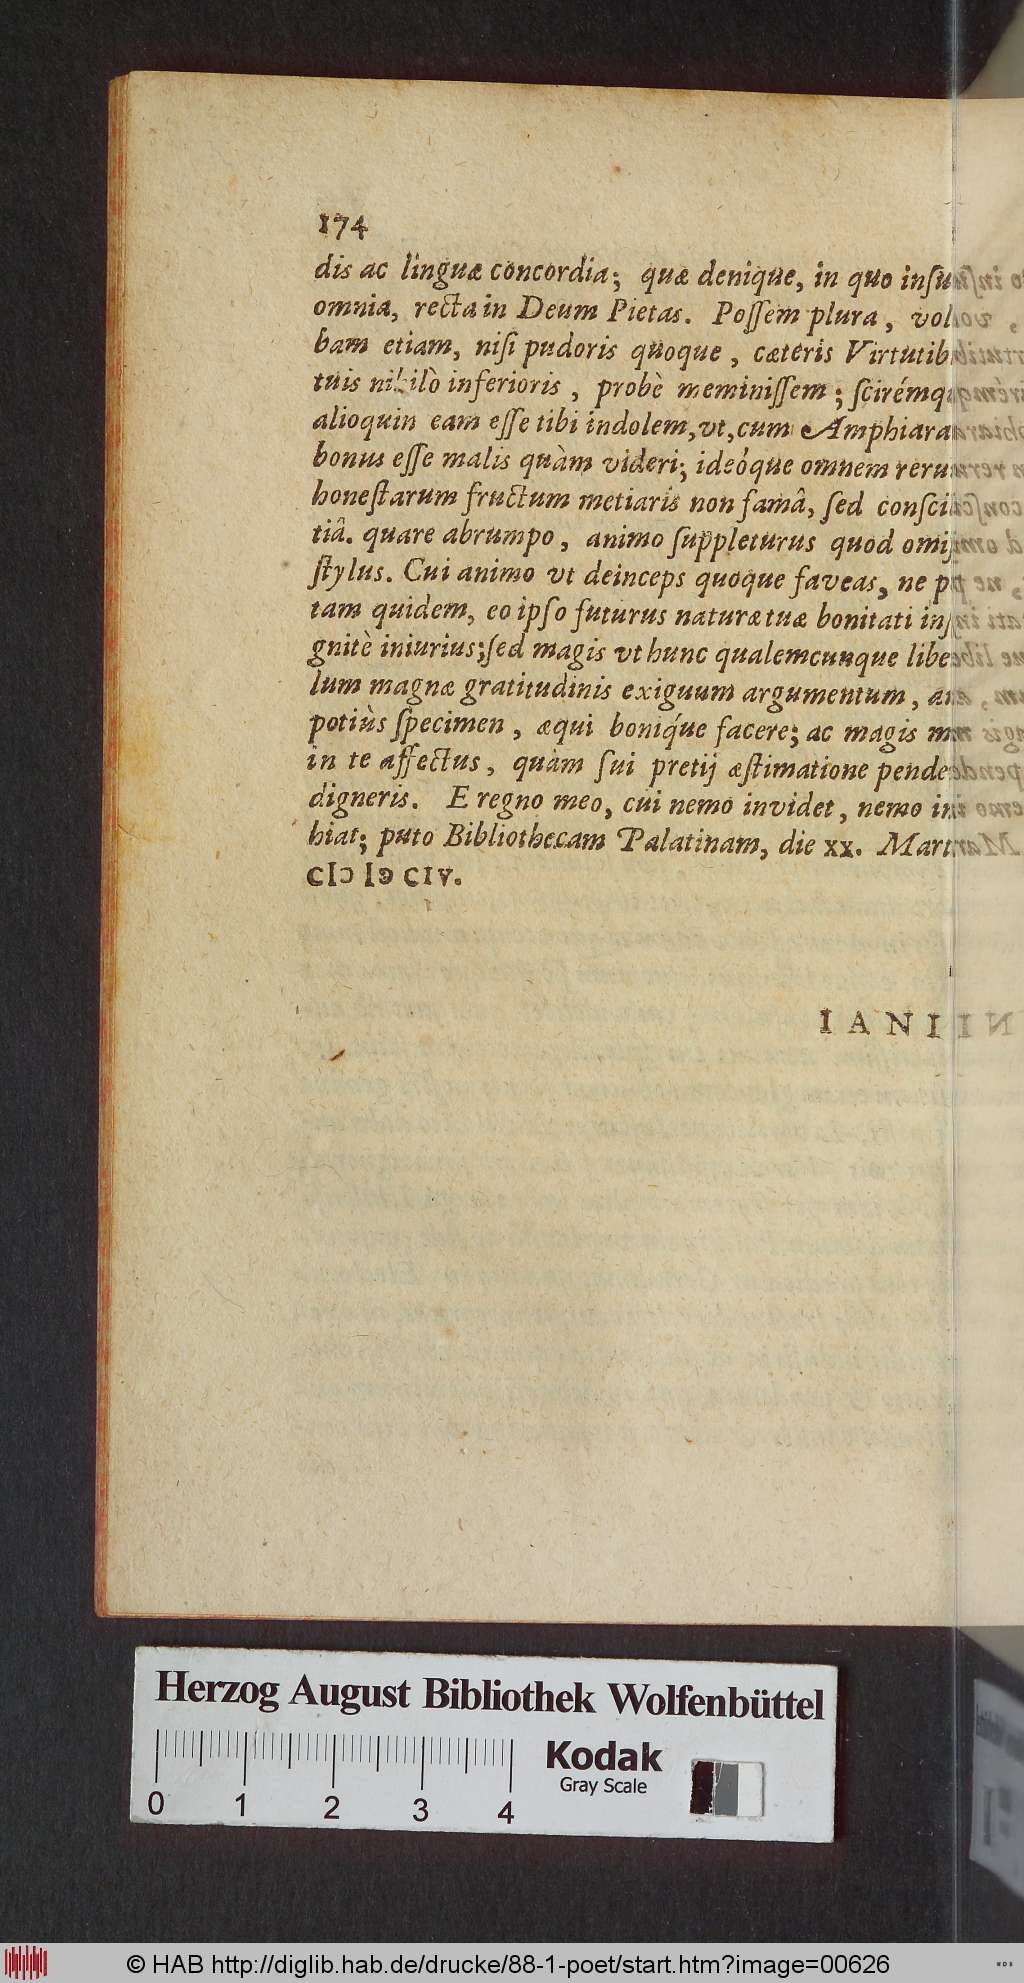 174
dis ac linguæ concordia; quæ denique, in quo insu
omnia, recta in Deum Pietas. Possem plura, vol
bam etiam, nisi pudoris quoque, cæteris Virtutib
tuis nihilò inferioris, probè meminissem; scirémq
alioquin eam esse tibi indolem, vt, cum Amphiara
bonus esse malis quàm videri; ideóque omnem reru
honestarum fructum metiaris non famâ, sed consci
tiâ. quare abrumpo, animo suppleturus quod omi
stylus. Cui animo vt deinceps quoque faveas, ne p
tam quidem, eo ipso futurus naturæ tuæ bonitati in
gnitè iniurius; sed magis vt hunc qualemcunque libe
lum magnæ gratitudinis exiguum argumentum, a
potiùs specimen, æqui boniq́ue facere; ac magis m
in te affectus, quàm sui pretij æstimatione pende
digneris. E regno meo, cui nemo invidet, nemo in
hiat; puto Bibliothecam Palatinam, die xx. Mart
CIↃ IↃ CIV.
IANI
Herzog August Bibliothek Wolfenbüttel
Kodak
Gray Scale
0 1 2 3 4
© HAB http://diglib.hab.de/drucke/88-1-poet/start.htm?image=00626